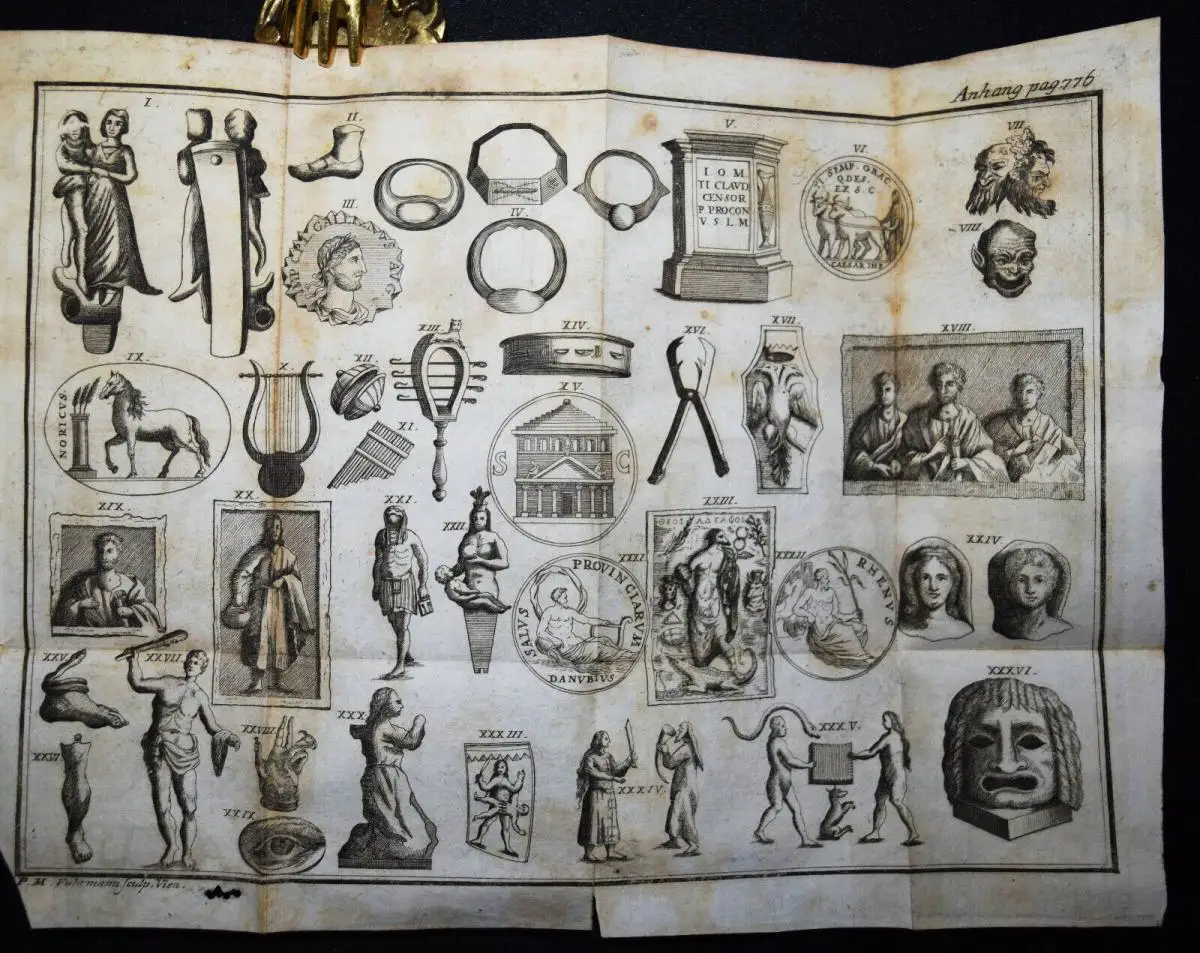 Anhang pag. 776
I.
II.
V.
VI.
VII.
I. O. M.
TI CLAVD.
CENSOR
P. PROCON
V. S. L. M.
TI SEMP. GRAC
Q DES.
EX S. C.
CAESAR IMP.
III.
IV.
VIII.
GALLIENVS AVG
IX.
X.
XII.
XIII.
XIV.
XVI.
XVII.
XVIII.
NORICVS.
XI.
XV.
S C
XIX.
XX.
XXI.
XXII.
XXIII.
XXIV.
XXXI.
XXXII.
SALVS PROVINCIARVM
DANVBIVS
RHENVS
XXV.
XXVI.
XXVII.
XXVIII.
XXIX.
XXX.
XXXIII.
XXXIV.
XXXV.
XXXVI.
sculp. Vien.